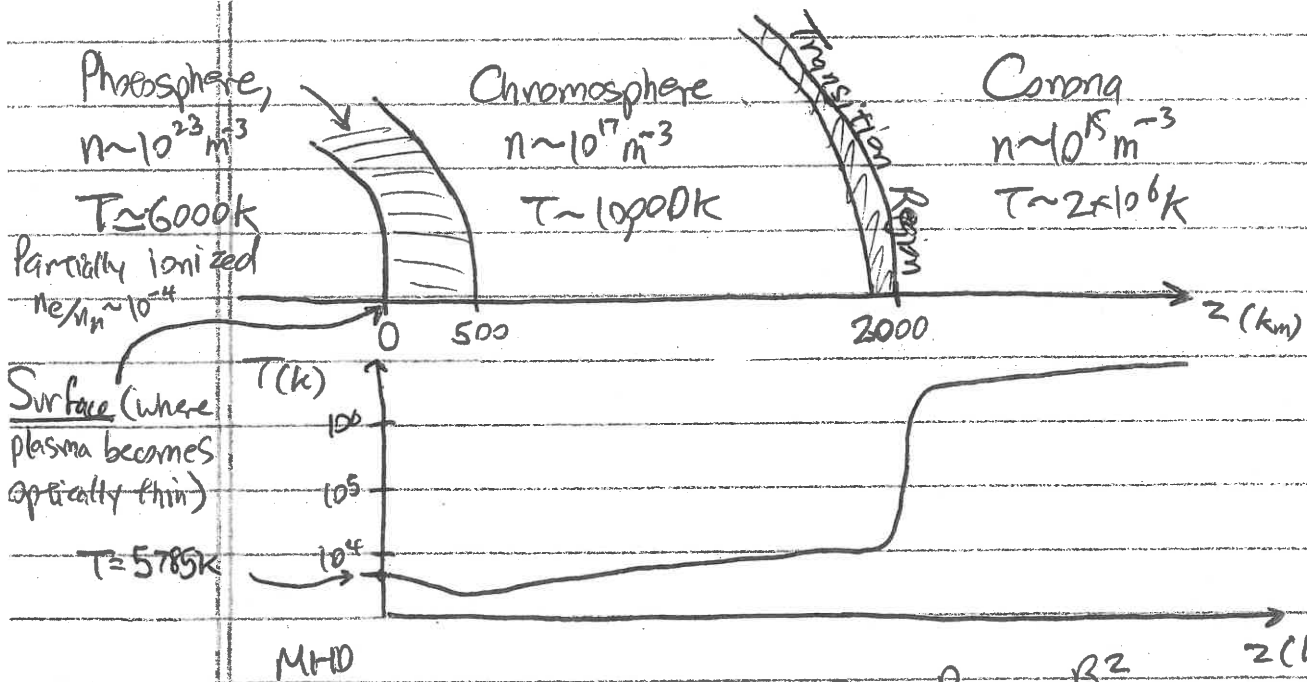 Photosphere,
n~10²³m⁻³
T≃6000k
Partially ionized
ne/nn~10⁻⁴
Chromosphere
n~10¹⁷m⁻³
T~10000k
Transition Region
Corona
n~10¹⁵m⁻³
T~2×10⁶k
0 500 2000 z(km)
Surface (where
plasma becomes
optically thin)
T=5785k
T(k)
10⁶
10⁵
10⁴
MHD
B²